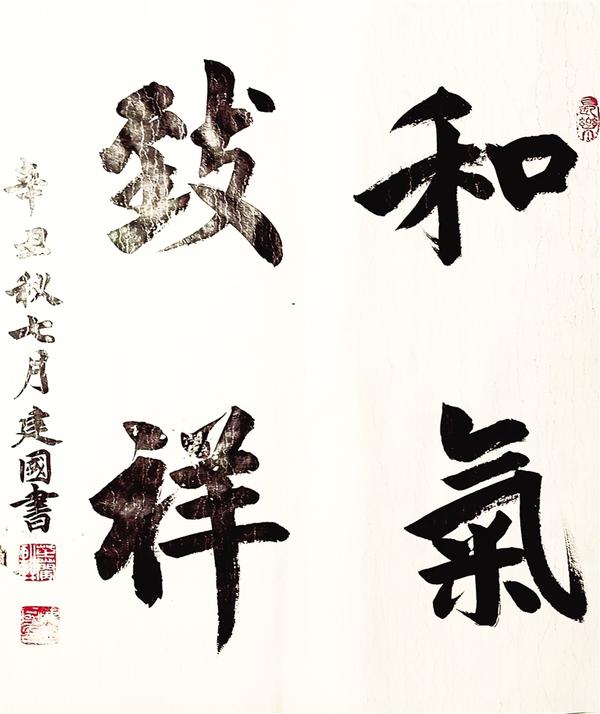 和氣
致祥
辛丑秋七月建國書